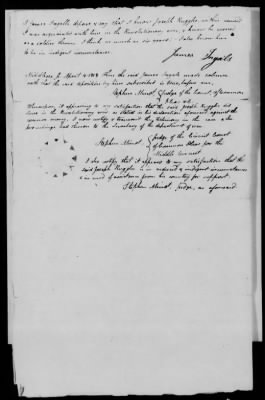 I James Ingalls depose & say that I know Joseph Ruggles in this
I was acquainted with him in the Revolutionary war, & know he served
as a soldier therein I think as much as six years. I also know him
to be in indigent circumstances.
James Ingalls
Middlesex ss April 1818 Then the said James Ingalls made solemn
oath that the said deposition by him subscribed is true, before me
Stephen Minot, Judge of the Court of Common
Pleas
Whereupon, it appearing to my satisfaction that the said Joseph Ruggles did
serve in the Revolutionary war as stated in his declaration aforesaid against the
common enemy, I now certify & transmit the
proceedings had thereon to the Secretary of the department of war.
Stephen Minot, Judge of the Circuit Court
of Common Pleas for the
Middle Circuit
I also certify that it appears to my satisfaction that the
said Joseph Ruggles is in reduced & indigent circumstances
& in need of assistance from his country for support.
Stephen Minot, Judge, as aforesaid